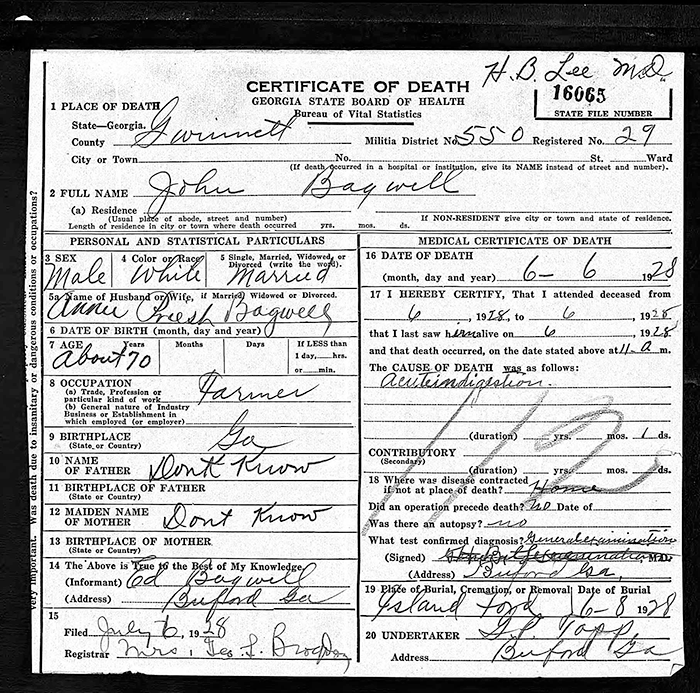 H. B. Lee M.D.
CERTIFICATE OF DEATH
GEORGIA STATE BOARD OF HEALTH
Bureau of Vital Statistics
16065
STATE FILE NUMBER
1 PLACE OF DEATH
State—Georgia.
County Gwinnett Militia District No. 550 Registered No. 29
City or Town No. St. Ward
(If death occurred in a hospital or institution, give its NAME instead of street and number).
2 FULL NAME John Bagwell
(a) Residence
(Usual place of abode, street and number) If NON-RESIDENT give city or town and state of residence.
Length of residence in city or town where death occurred yrs. mos. ds.
PERSONAL AND STATISTICAL PARTICULARS
3 SEX 4 Color or Race 5 Single, Married, Widowed, or Divorced (write the word).
Male White Married
5a Name of Husband or Wife, if Married, Widowed or Divorced.
Annie Bagwell
6 DATE OF BIRTH (month, day and year)
7 AGE Years Months Days If LESS than
1 day, hrs.
or min.
About 70
8 OCCUPATION Farmer
(a) Trade, Profession or
particular kind of work
(b) General nature of Industry
Business or Establishment in
which employed (or employer)
9 BIRTHPLACE Ga
(State or Country)
10 NAME
OF FATHER Dont Know
11 BIRTHPLACE OF FATHER
(State or Country)
12 MAIDEN NAME
OF MOTHER Dont Know
13 BIRTHPLACE OF MOTHER
(State or Country)
14 The Above is True to the Best of My Knowledge.
(Informant) Ed Bagwell
(Address) Buford Ga
15
Filed July 6, 1928
Registrar Mrs. Geo. L. Brogdon
MEDICAL CERTIFICATE OF DEATH
16 DATE OF DEATH
(month, day and year) 6 - 6 1928
17 I HEREBY CERTIFY, That I attended deceased from
6, 1928, to 6, 1928
that I last saw him alive on 6, 1928
and that death occurred, on the date stated above at 11. a m.
The CAUSE OF DEATH was as follows:
Acute indigestion.
112
(duration) yrs. mos. 1 ds.
CONTRIBUTORY
(Secondary)
(duration) yrs. mos. ds.
18 Where was disease contracted
if not at place of death? Home
Did an operation precede death? no Date of
Was there an autopsy? no
What test confirmed diagnosis? General examination
(Signed) M.D.
(Address) Buford Ga.
19 Place of Burial, Cremation, or Removal Date of Burial
Island Ford 6-8 1928
20 UNDERTAKER Tapp
Address Buford Ga
very important. Was death due to insanitary or dangerous conditions or occupations?